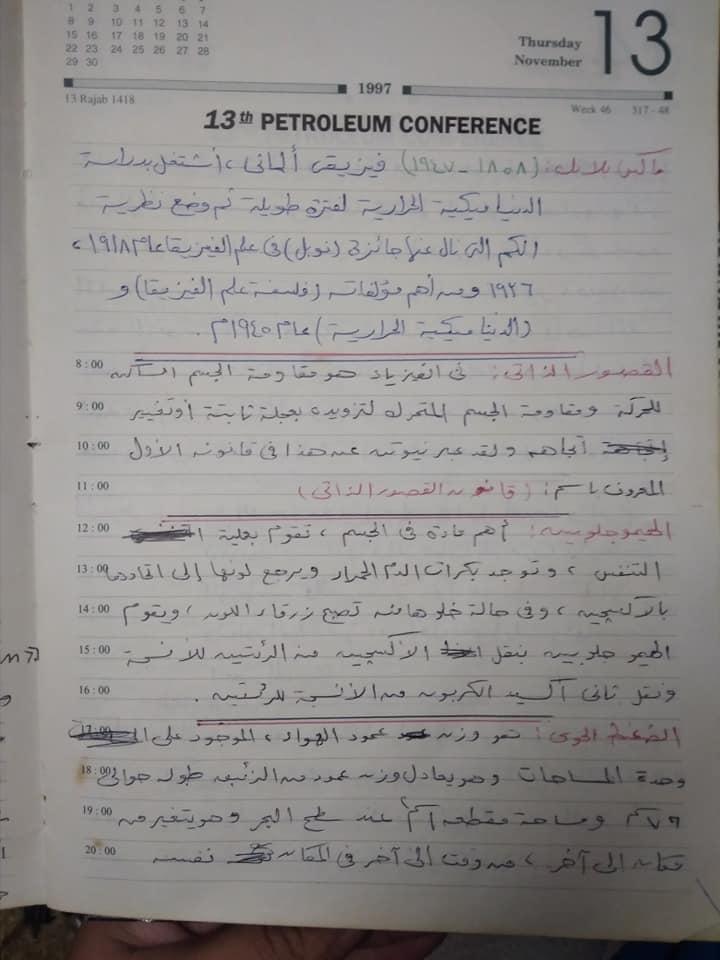 1 2 3 4 5 6 7
8 9 10 11 12 13 14
15 16 17 18 19 20 21
22 23 24 25 26 27 28
29 30
Thursday
November
13
1997
13 Rajab 1418
Week 46 317 - 48
13th PETROLEUM CONFERENCE
ماكس بلانك: (١٨٥٨ - ١٩٤٧) فيزيقى ألمانى، أشتغل بدراسة
الديناميكية الحرارية لفترة طويلة ثم وضع نظرية
الكم التى نال عنها جائزة (نوبل) فى علم الفيزيقا عام ١٩١٨،
١٩٢٦ ومن أهم مؤلفاته (فلسفة علم الفيزيقا) و
(الديناميكية الحرارية) عام ١٩٤٥م.
8:00 القصور الذاتى: فى الفيزياء هو مقاومة الجسم الساكن
9:00 للحركة ومقاومة الجسم المتحرك لتزويده بعجلة ثابتة أو تغيير
10:00 اتجاهه ولقد عبر نيوتن عن هذا فى قانونه الأول
11:00 المعروف باسم: (قانون القصور الذاتى)
12:00 الهيموجلوبين: أهم مادة فى الجسم، تقوم بعملية
13:00 التنفس، وتوجد بكرات الدم الحمراء ويرجع لونها إلى اتحادها
14:00 بالأكسجين، وفى حالة خلوها منه تصبح زرقاء اللون، ويقوم
15:00 الهيموجلوبين بنقل الأكسجين من الرئتين للأنسجة
16:00 ونقل ثانى أكسيد الكربون من الأنسجة للرئتين.
17:00 الضغط الجوى: هو وزن عمود الهواء، الموجود على
18:00 وحدة المساحات وهو يعادل وزن عمود من الزئبق طوله حوالى
19:00 ٧٦سم ومساحة مقطعه ١سم عند سطح البحر وهو يتغير من
20:00 مكان إلى آخر، من وقت إلى آخر فى المكان نفسه